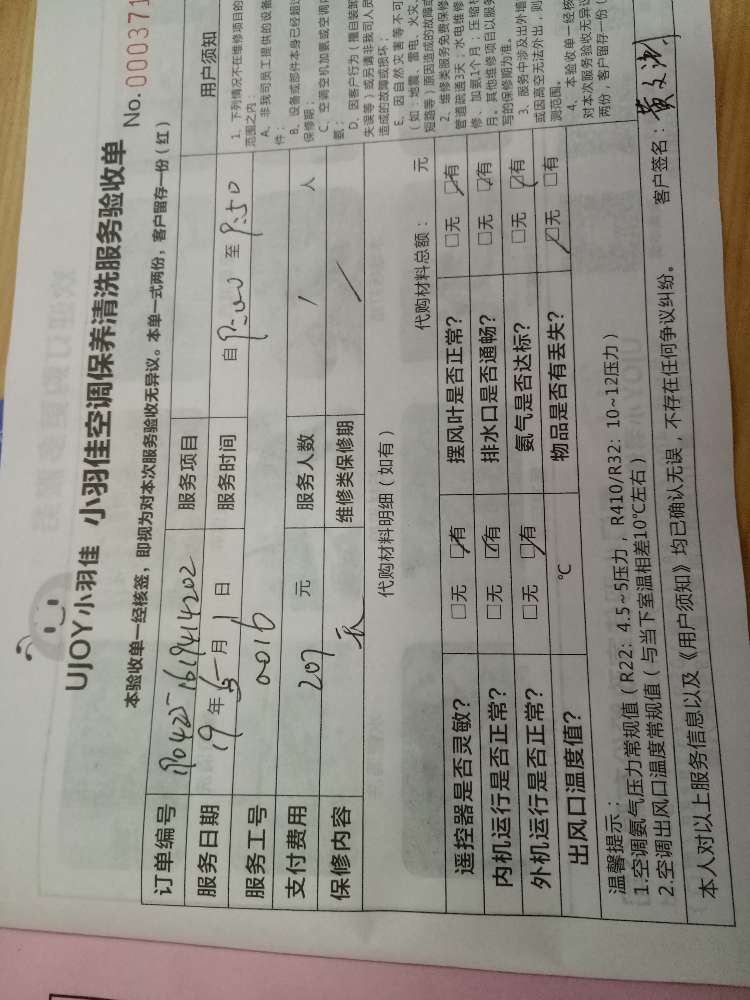 UJOY小羽佳 小羽佳空调保养清洗服务验收单 No. 000371
本验收单一经核签，即视为对本次服务验收无异议。本单一式两份，客户留存一份（红）
订单编号 服务项目
服务日期 19 年 5 月 1 日 服务时间 自 至
服务工号 0016
支付费用 207 元 服务人数 1 人
保修内容 无 维修类保修期 /
代购材料明细（如有） 代购材料总额： 元
遥控器是否灵敏？ □无 ☑有 摆风叶是否正常？ □无 ☑有
内机运行是否正常？ □无 ☑有 排水口是否通畅？ □无 ☑有
外机运行是否正常？ □无 ☑有 氨气是否达标？ □无 ☑有
出风口温度值？ ℃ 物品是否有丢失？ ☑无 □有
用户须知
1、下列情况不在维修项目的
范围之内：
A、非我司员工提供的设备
件：
B、设备或部件本身已经超过
保修期；
C、空调空机加氨或空调
氨；
D、因客户行为（擅自装卸
失误等）或另请非我司人员
造成的故障或损坏；
E、因自然灾害等不可
（如：地震、雷电、火灾
短路等）原因造成的故障或
2、维修类服务免费保修
管道疏通3天；水电维修
修，加氨1个月；压缩机
月。其他维修项目以服务
写的保修期为准。
3、服务中涉及出外墙
或因高空无法外出，则
测范围。
4、本验收单一经核
对本次服务验收无异议
两份，客户留存一份（
温馨提示：
1.空调氨气压力常规值（R22：4.5~5压力，R410/R32：10~12压力）
2.空调出风口温度常规值（与当下室温相差10℃左右）
本人对以上服务信息以及《用户须知》均已确认无误，不存在任何争议纠纷。 客户签名：